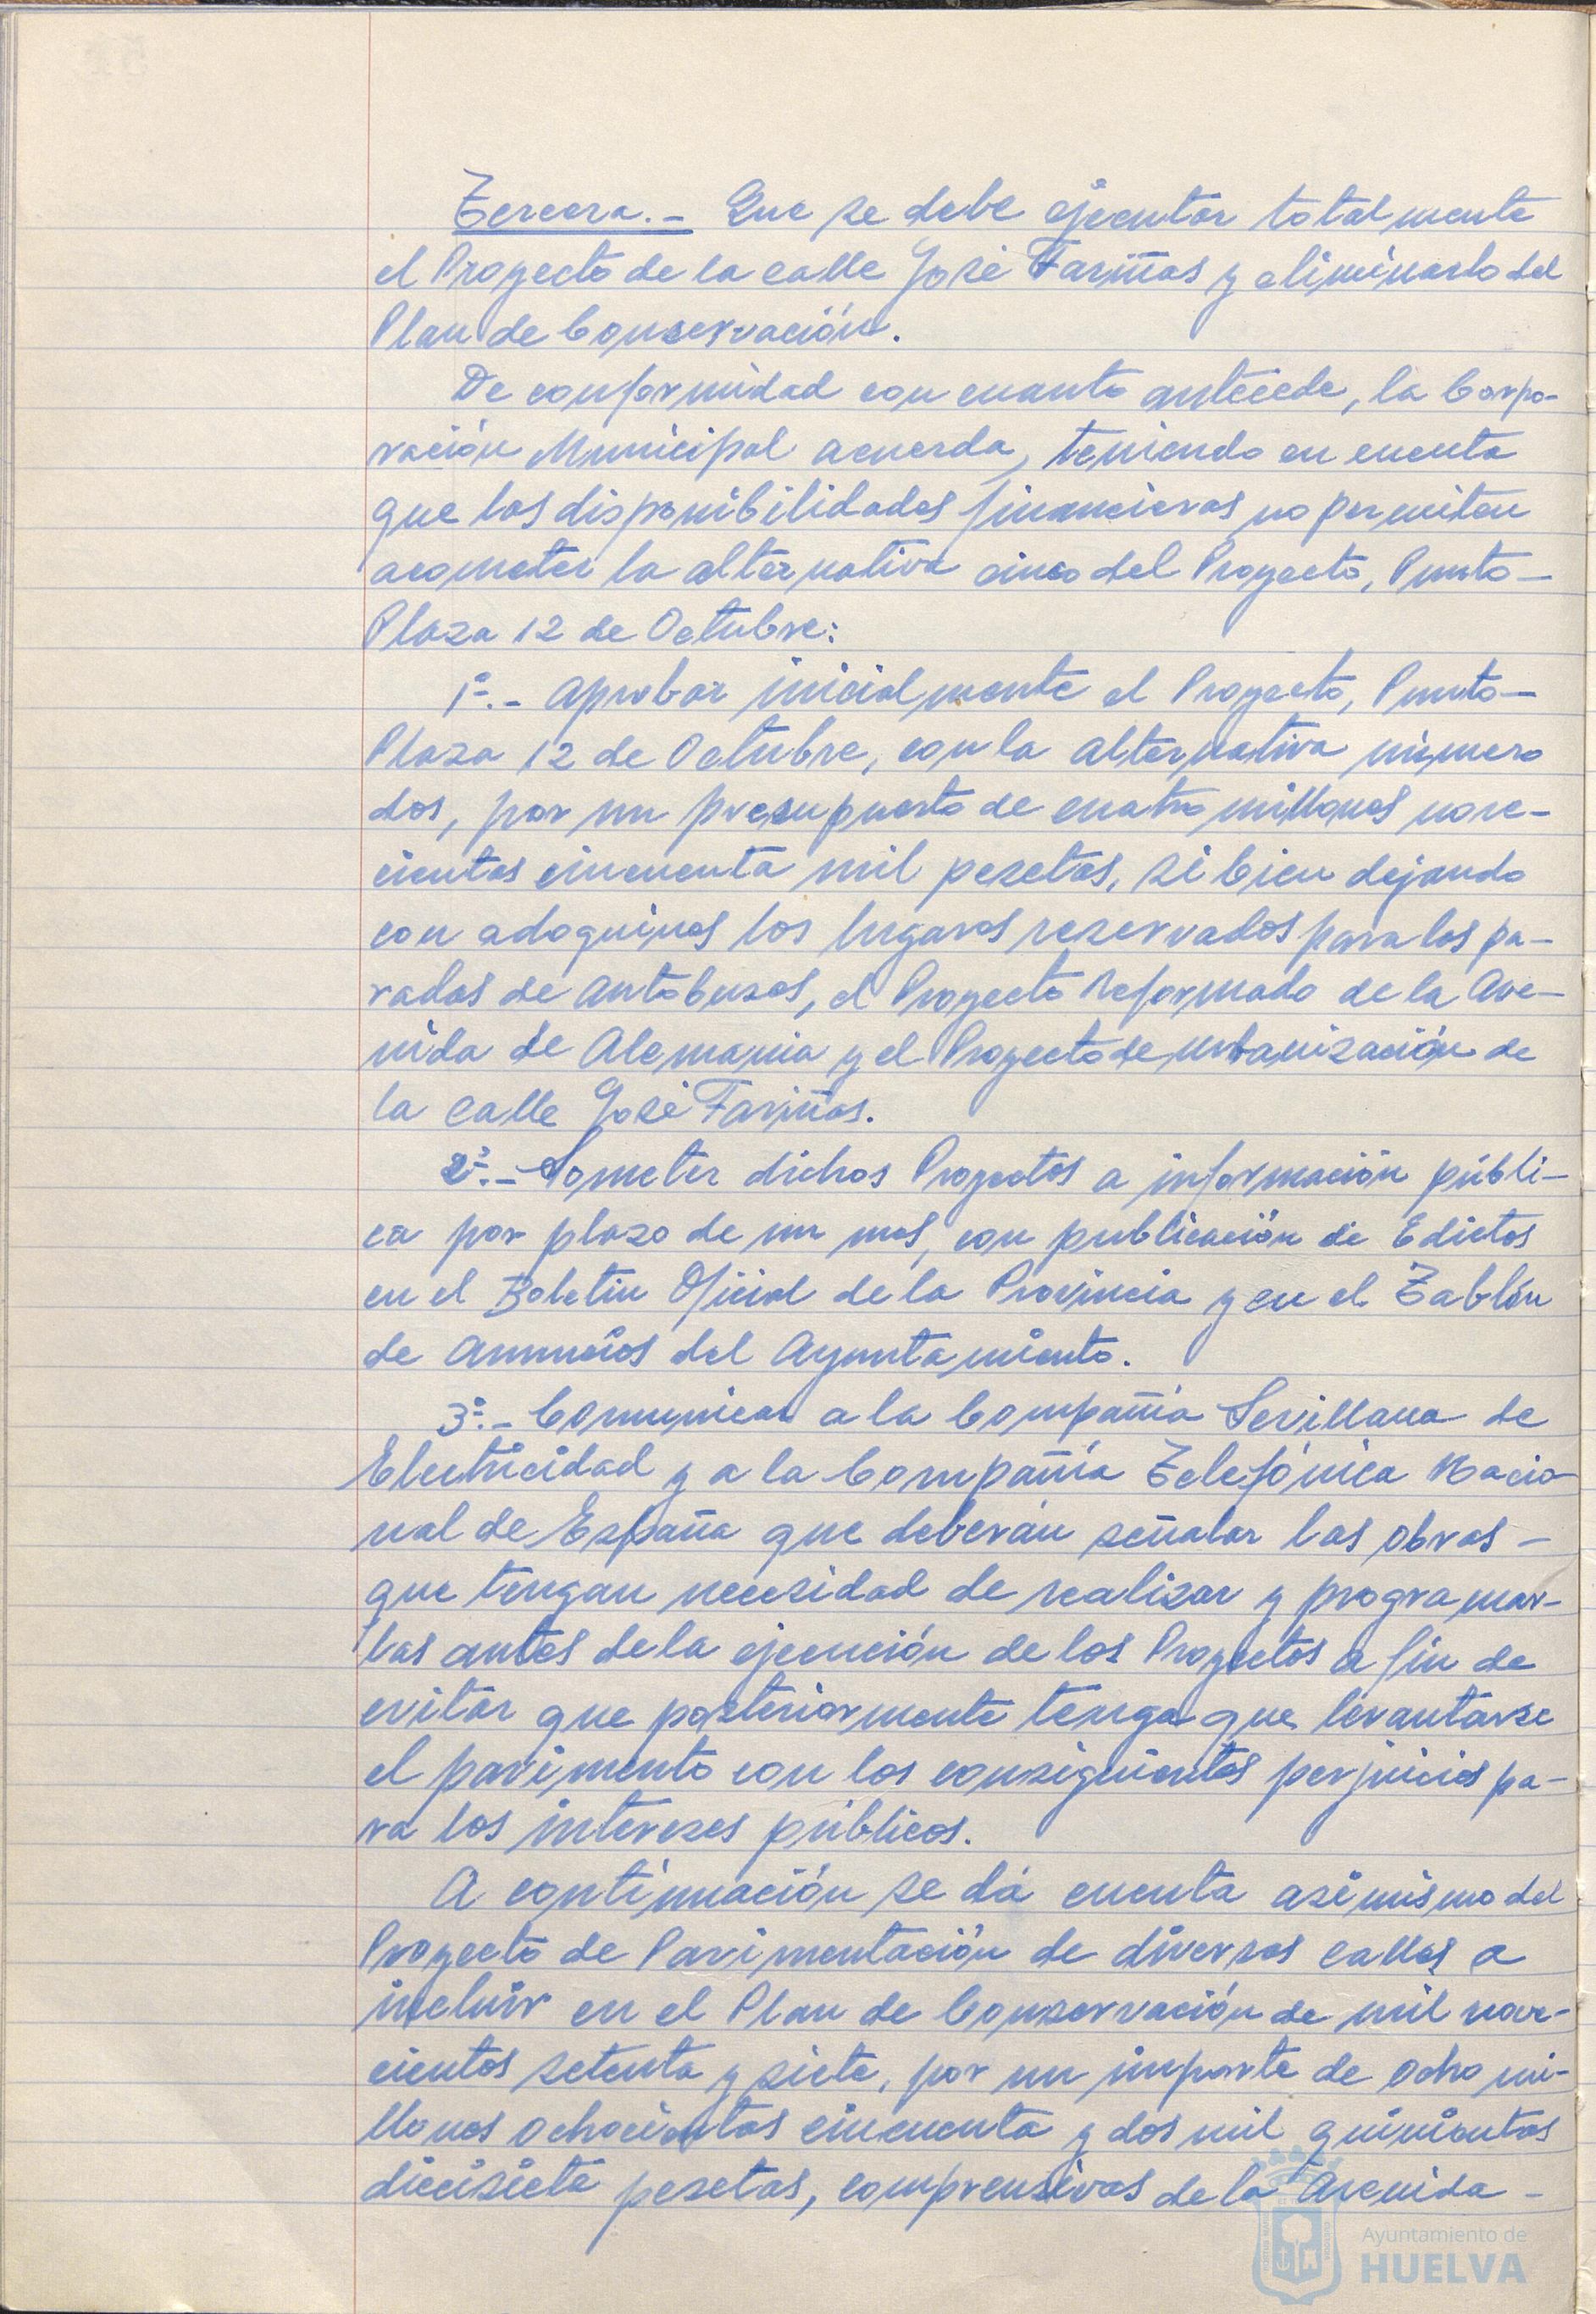 Tercera.- Que se debe ejecutar totalmente
el Proyecto de la calle José Fariñas y eliminarlo del
Plan de Conservación.
De conformidad con cuanto antecede, la Corpo-
ración Municipal acuerda, teniendo en cuenta
que las disponibilidades financieras no permiten
acometer la alternativa cinco del Proyecto, Punto-
Plaza 12 de Octubre:
1º.- Aprobar inicialmente el Proyecto, Punto-
Plaza 12 de Octubre, con la alternativa número
dos, por un presupuesto de cuatro millones nove-
cientas cincuenta mil pesetas, si bien dejando
con adoquines los lugares reservados para las pa-
radas de autobuses, el Proyecto reformado de la Ave-
nida de Alemania y el Proyecto de urbanización de
la calle José Fariñas.
2º.- Someter dichos Proyectos a información públi-
ca por plazo de un mes, con publicación de Edictos
en el Boletín Oficial de la Provincia y en el Tablón
de anuncios del Ayuntamiento.
3º.- Comunicar a la Compañía Sevillana de
Electricidad y a la Compañía Telefónica Nacio-
nal de España que deberán señalar las obras -
que tengan necesidad de realizar y programar-
las antes de la ejecución de los Proyectos a fin de
evitar que posteriormente tenga que levantarse
el pavimento con los consiguientes perjuicios pa-
ra los intereses públicos.
A continuación se dá cuenta asimismo del
Proyecto de Pavimentación de diversas calles a
incluir en el Plan de Conservación de mil nove-
cientos setenta y siete, por un importe de ocho mi-
llones ochocientas cincuenta y dos mil quinientas
diecisiete pesetas, comprensivas de la Avenida -
Ayuntamiento de
HUELVA